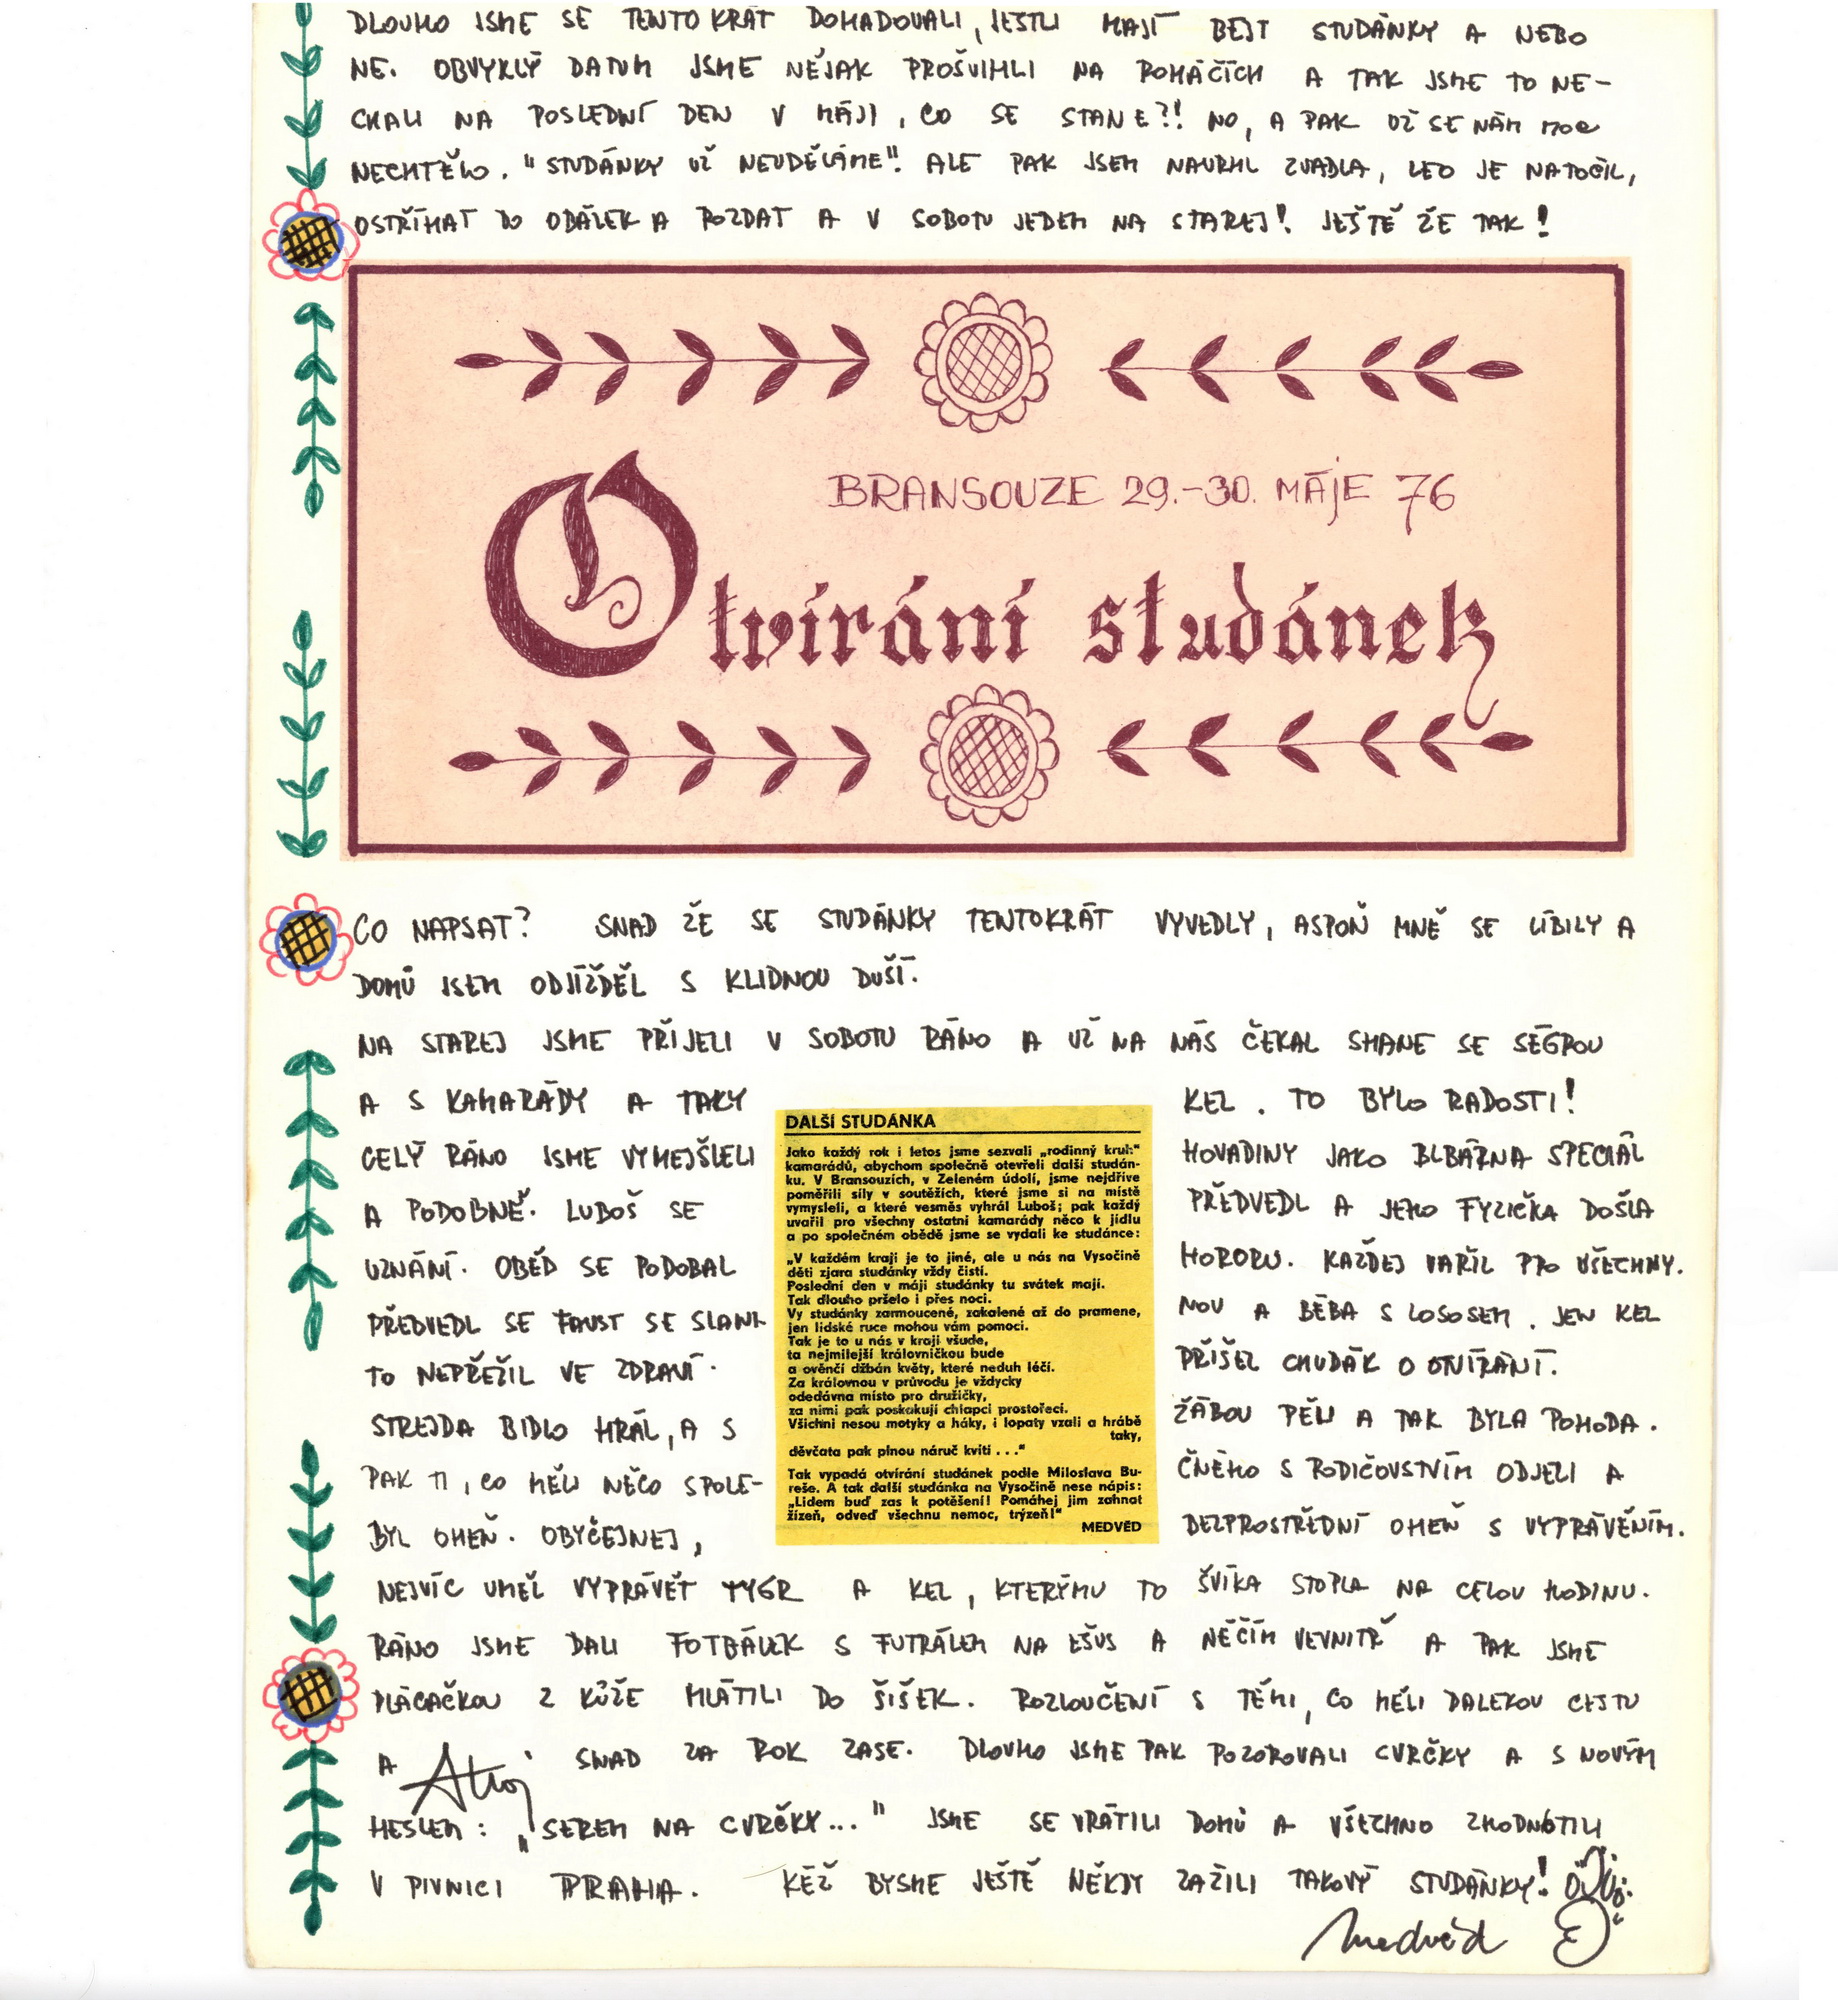 DLOUHO JSME SE TENTOKRÁT DOHADOVALI, JESTLI MAJÍ BEJT STUDÁNKY A NEBO
NE. OBVYKLÝ DATUM JSME NĚJAK PROŠVIHLI NA POMÁČÍCH A TAK JSME TO NE-
CHALI NA POSLEDNÍ DEN V MÁJI, CO SE STANE?! NO, A PAK UŽ SE NÁM MOC
NECHTĚLO. "STUDÁNKY UŽ NEUDĚLÁME". ALE PAK JSEM NAVRHL ZVADLA, LEO JE NATOČIL,
OSTŘÍHAT DO OBÁLEK A ROZDAT A V SOBOTU JEDEM NA STAREJ! JEŠTĚ ŽE TAK!
BRANSOUZE 29.-30. MÁJE 76
Otvírání studánek
CO NAPSAT? SNAD ŽE SE STUDÁNKY TENTOKRÁT VYVEDLY, ASPOŇ MNĚ SE LÍBILY A
DOMŮ JSEM ODJÍŽDĚL S KLIDNOU DUŠÍ.
NA STAREJ JSME PŘIJELI V SOBOTU RÁNO A UŽ NA NÁS ČEKAL SHANE SE SÉGROU
A S KAMARÁDY A TAKY KEL. TO BYLO RADOSTI!
CELÝ RÁNO JSME VYMEJŠLELI HOVADINY JAKO BLBÁRNA SPECIÁL
A PODOBNĚ. LUBOŠ SE PŘEDVEDL A JEHO FYZIČKA DOŠLA
UZNÁNÍ. OBĚD SE PODOBAL HORORU. KAŽDEJ VAŘIL PRO VŠECHNY.
PŘEDVEDL SE FAUST SE SLANI- NOU A BÉBA S LOSOSEM. JEN KEL
TO NEPŘEŽIL VE ZDRAVÍ. PŘIŠEL CHUDÁK O OTVÍRÁNÍ.
STREJDA BIDLO HRÁL, A S ŽÁBOU PĚLI A TAK BYLA POHODA.
PAK TI, CO MĚLI NĚCO SPOLE- ČNÉHO S RODIČOVSTVÍM ODJELI A
BYL OHEŇ. OBYČEJNEJ, BEZPROSTŘEDNÍ OHEŇ S VYPRÁVĚNÍM.
DALŠÍ STUDÁNKA
Jako každý rok i letos jsme sezvali „rodinný kruh“
kamarádů, abychom společně otevřeli další studán-
ku. V Bransouzích, v Zeleném údolí, jsme nejdříve
poměřili síly v soutěžích, které jsme si na místě
vymysleli, a které vesměs vyhrál Luboš; pak každý
uvařil pro všechny ostatní kamarády něco k jídlu
a po společném obědě jsme se vydali ke studánce:
„V každém kraji je to jiné, ale u nás na Vysočině
děti zjara studánky vždy čistí.
Poslední den v máji studánky tu svátek mají.
Tak dlouho pršelo i přes noci.
Vy studánky zarmoucené, zakalené až do pramene,
jen lidské ruce mohou vám pomoci.
Tak je to u nás v kraji všude,
ta nejmilejší královničkou bude
a ověnčí džbán květy, které neduh léčí.
Za královnou v průvodu je vždycky
odedávna místo pro družičky,
za nimi pak poskakují chlapci prostořecí.
Všichni nesou motyky a háky, i lopaty vzali a hrábě
taky,
děvčata pak plnou náruč kvítí . . .“
Tak vypadá otvírání studánek podle Miloslava Bu-
reše. A tak další studánka na Vysočině nese nápis:
„Lidem buď zas k potěšení! Pomáhej jim zahnat
žízeň, odveď všechnu nemoc, trýzeň!“
MEDVĚD
NEJVÍC UMĚL VYPRÁVĚT TYGR A KEL, KTERÝMU TO ŠVÍKA STOPLA NA CELOU HODINU.
RÁNO JSME DALI FOTBÁLEK S FUTRÁLEM NA EŠUS A NĚČÍM VEVNITŘ A PAK JSME
PLÁCAČKOU Z KŮŽE MLÁTILI DO ŠIŠEK. ROZLOUČENÍ S TĚMI, CO MĚLI DALEKOU CESTU
A Ahoj SNAD ZA ROK ZASE. DLOUHO JSME PAK POZOROVALI CVRČKY A S NOVÝM
HESLEM: „SEREM NA CVRČKY..." JSME SE VRÁTILI DOMŮ A VŠECHNO ZHODNOTILI
V PIVNICI PRAHA. KÉŽ BYSME JEŠTĚ NĚKDY ZAŽILI TAKOVÝ STUDÁNKY!
Medvěd